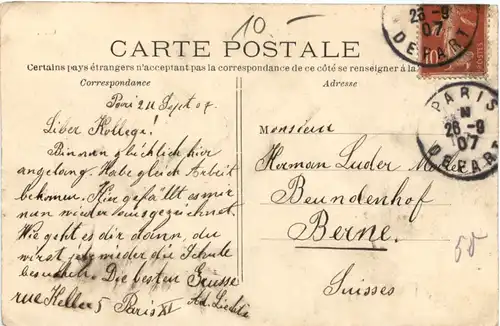 10.-
CARTE POSTALE
Certains pays étrangers n'acceptant pas la correspondance de ce côté se renseigner à la
Correspondance
Adresse
26-9
07
DEPART
PARIS
26-9
07
DEPART
Sept 07
Liber Kollega!
Bin nun glücklich hier
angelang. Habe gleich Arbeit
bekomen. Hier gefällt es mir
nun wieder ausgezeichnet.
Wie geht es dir dann, du
wirst jez wieder die Schule
besuchen. Die besten Grüsse
rue Keller 5 Paris XI Ad.
Monsieur
Herman Luder
Beundenhof
Berne.
Suisses
50